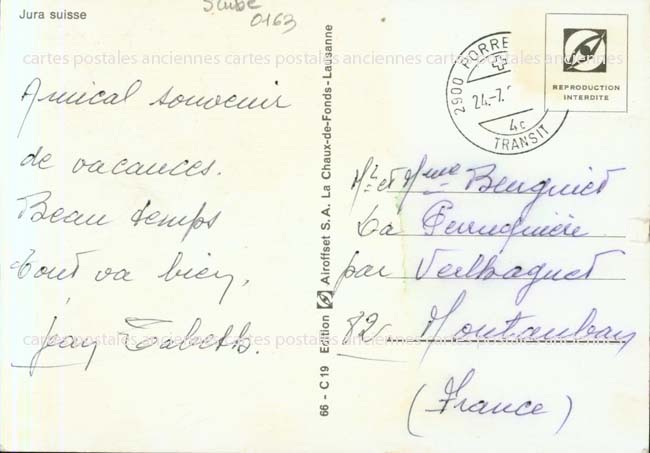 Jura suisse
0163
cartes postales anciennes cartes postales anciennes cartes postales anciennes
Amical souvenir
de vacances.
Beau temps
tout va bien,
Jean
66 - C 19 Edition Airoffset S.A. La Chaux-de-Fonds - Lausanne
2900 PORRE
24.-7.
4c
TRANSIT
REPRODUCTION
INTERDITE
Mr et Mme Benguiet
La
par Verlhaguet
82 Montauban
(France)
cartes postales anciennes cartes postales anciennes cartes postales anciennes